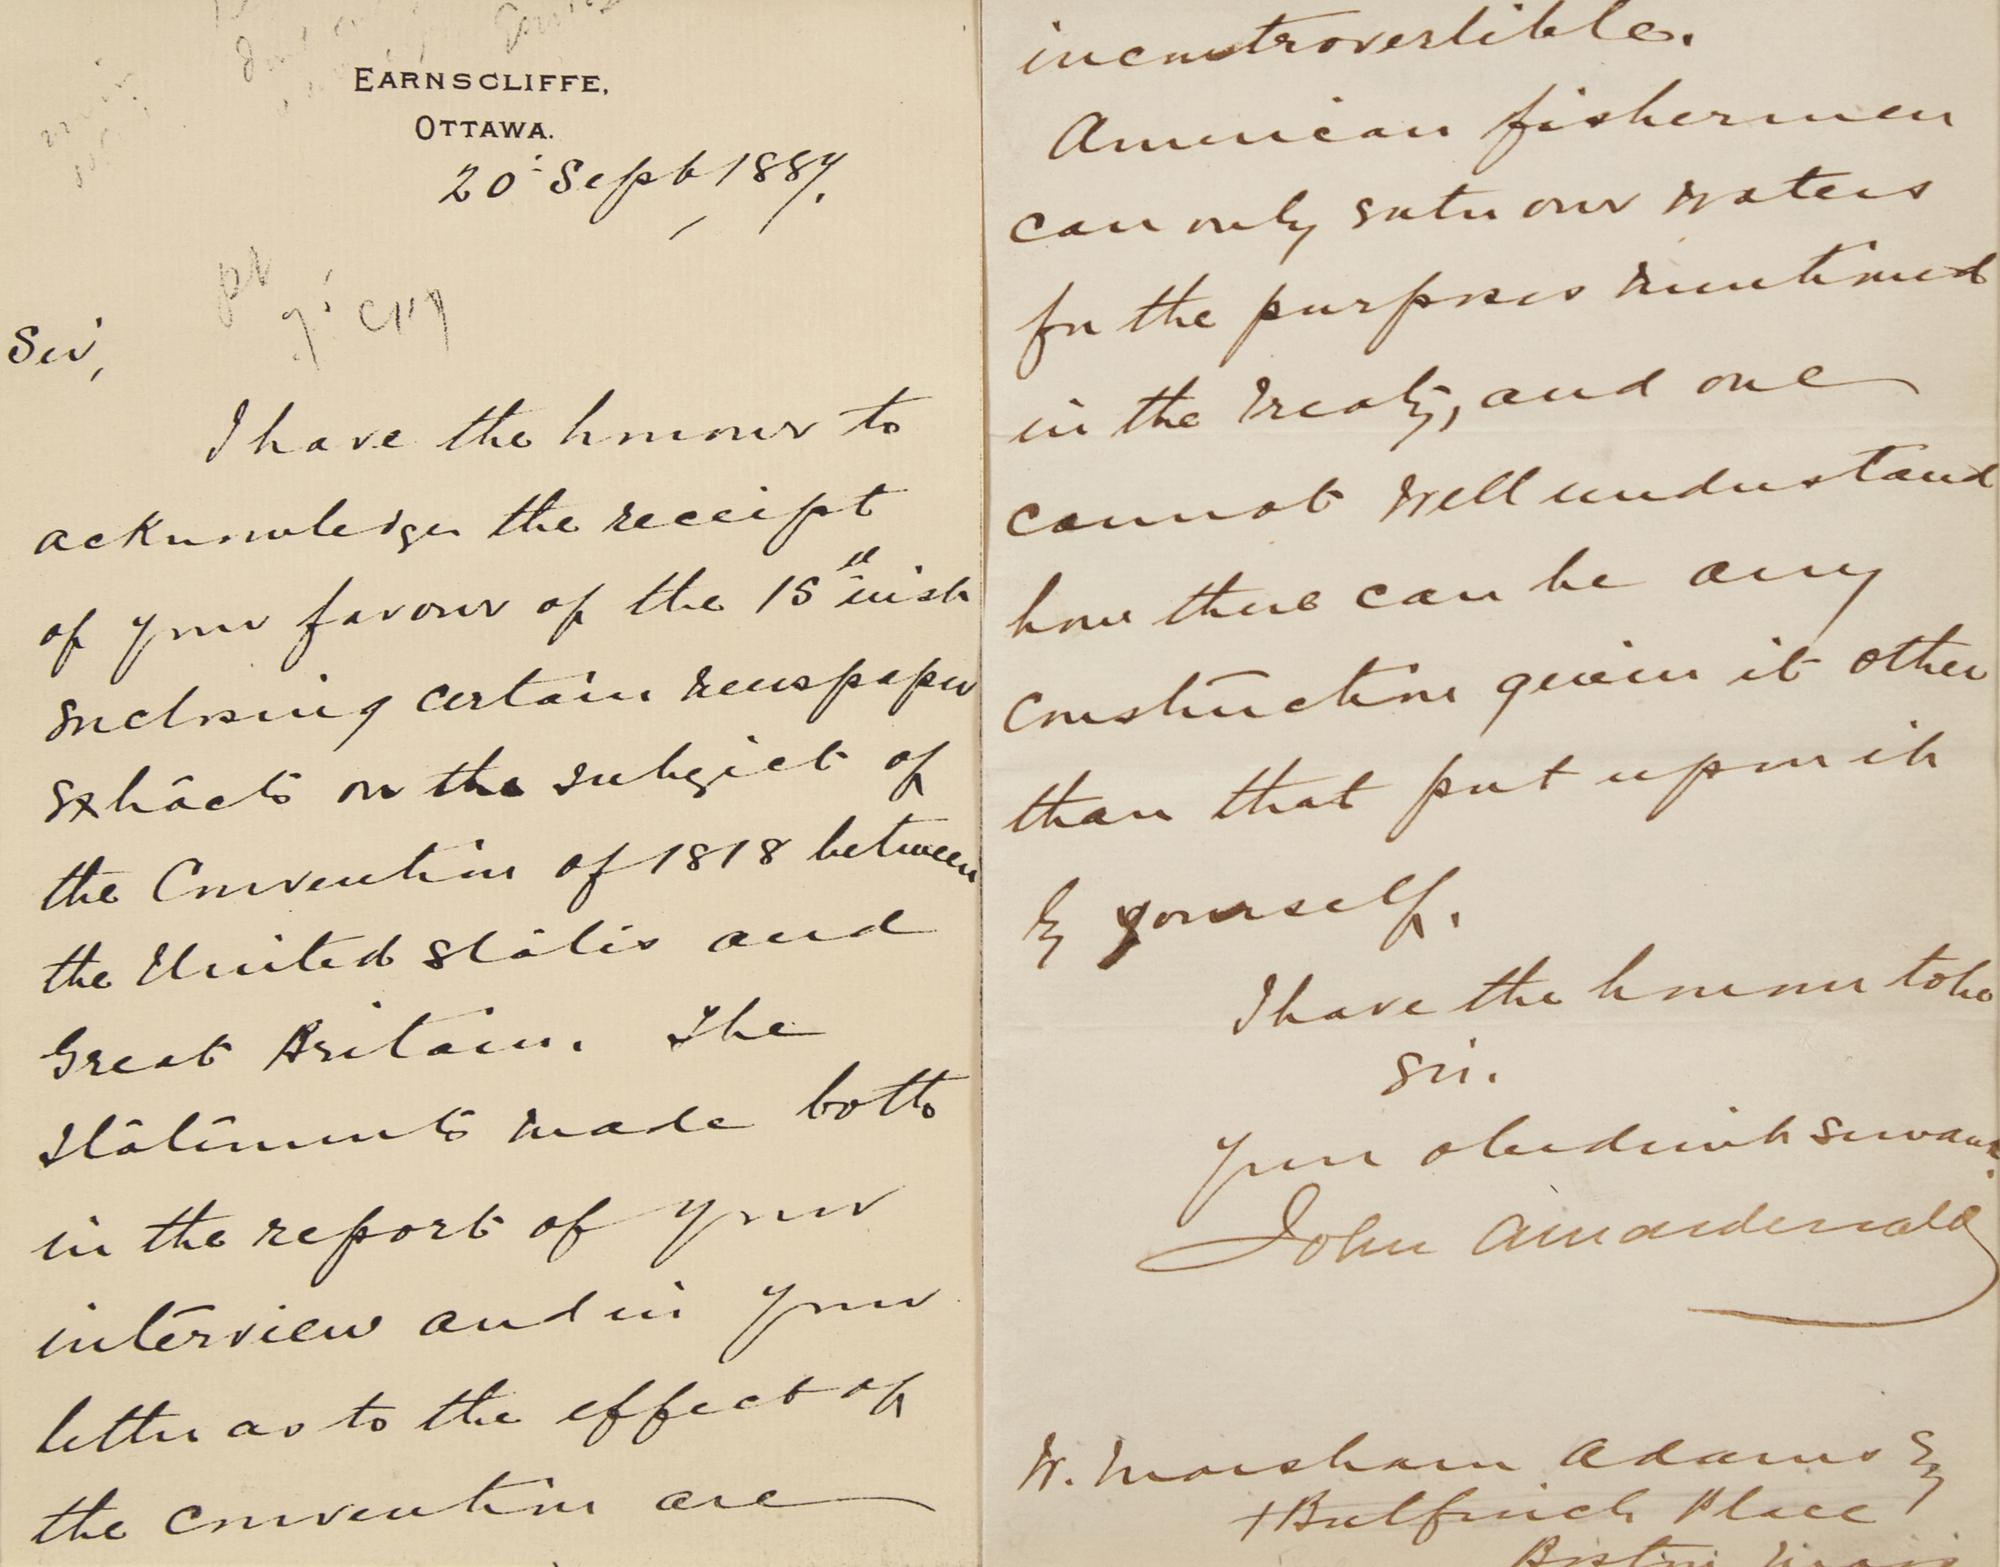 EARNSCLIFFE,
OTTAWA.
20 Sept 1887.
Sir,
I have the honour to
acknowledge the receipt
of your favour of the 15th inst
enclosing certain newspaper
extracts on the subject of
the Convention of 1818 between
the United States and
Great Britain. The
statements made both
in the report of your
interview and in your
letter as to the effect of
the convention are
incontrovertible.
American fishermen
can only enter our waters
for the purposes mentioned
in the Treaty, and one
cannot well understand
how there can be any
construction given it other
than that put upon it
by yourself.
I have the honour to be
Sir.
Your obedient servant
John A Macdonald
W. Marsham Adams Esq
Bulfinch Place
Boston